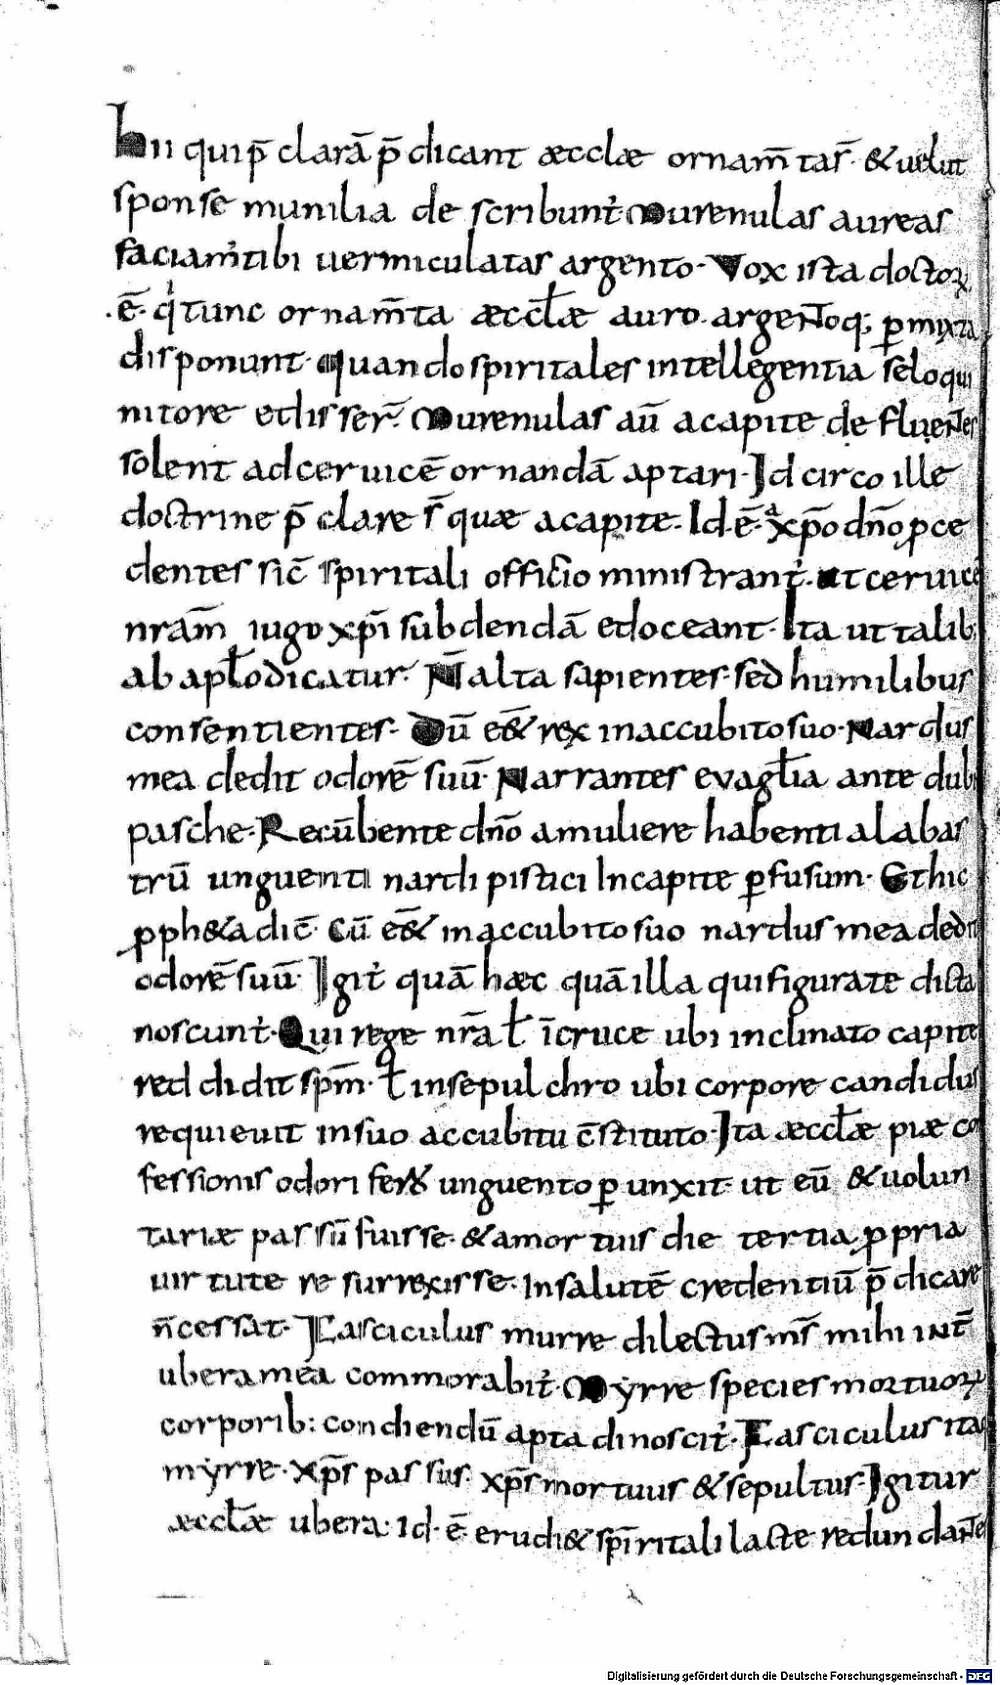 hii qui p̄ clarā p̄ dicant æcclæ ornam̄ tas̄· & uelut
sponse munilia de scribunt̓ Murenulas aureas
faciam̓ tibi uermiculatas argento· Vox ista doctoꝝ
·ē· qͥ tunc ornam̄ta æccłæ auro· argentoq; ꝑmixta
disponunt· Quando spiritales intellegentia seloqui
nitore edisser̄· Murenulas aū acapite de fluentes
solent ad ceruicē ornandā aptari· Id circo ille
doctrine p̄ clare s̄ quæ acapite· Id ē· a xp̄o dn̄o ꝓce
dentes sic̄ spiritali officio ministrant̓· ut ceruicē
nram̄ iugo xp̄i subdendā edoceant· Ita ut talib;
ab apło dicatur· N̄ alta sapientes· sed humilibus
consentientes· Dū ēē& rex inaccubito suo· Nardus
mea dedit odorē suū· Narrantes evagłia ante dub
pasche· Recūbente dn̄o amuliere habenti alabas
trū unguenti nardi pistici In capite ꝑfusum· Et hic
ꝓph&a dic̄· Cū ēē& inaccubito suo nardus mea dedit
odorē suū· Igit̓ quā hæc quā illa qui figurate dicta
noscunt̓· Qui rege nrā ł īcruce ubi inclinato capite
reddidit spm̄· ł insepulchro ubi corpore candidus
requieuit insuo accubitu c̄stituto· Ita æccłæ piæ co
fessionis odori ferꝰ unguento ꝑunxit· ut eū & uolun
tariæ passū fuisse· & amortuis die tertia ꝓpria
uirtute resurrexisse· Insalutē credentiū p̄ dicare
n̄ cessat· Fasciculus murre dilectus m̄s mihi int̄
ubera mea commorabit̓· Myrre species mortuoꝝ
corporib: condiendū apta dinoscit̓· Fasciculus ita
myrre· xp̄s passus· xp̄s mortuus & sepultus· Igitur
æccłæ ubera· Id· ē· erudi& sp̄iritali lacte redundante
Digitalisierung gefördert durch die Deutsche Forschungsgemeinschaft - DFG